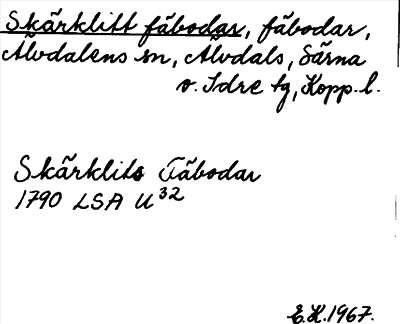 Skärklitt fäbodar, fäbodar,
Älvdalens sn, Älvdals, Särna
o. Idre tg, Kopp. l.
Skärklits Fäbodar
1790 LSA U³²
E.H. 1967.